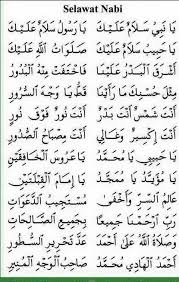 Selawat Nabi
يَا نَبِي سَلَامٌ عَلَيْكَ يَا رَسُولْ سَلَامٌ عَلَيْكَ
يَا حَبِيبْ سَلَامٌ عَلَيْكَ صَلَوَاتُ اللهْ عَلَيْكَ
أَشْرَقَ الْبَدْرُ عَلَيْنَا فَاخْتَفَتْ مِنْهُ الْبُدُورُ
مِثْلَ حُسْنِكَ مَا رَأَيْنَا قَطُّ يَا وَجْهَ السُّرُورِ
أَنْتَ شَمْسٌ أَنْتَ بَدْرٌ أَنْتَ نُورٌ فَوْقَ نُورٍ
أَنْتَ إِكْسِيرٌ وَغَالِي أَنْتَ مِصْبَاحُ الصُّدُورِ
يَا حَبِيبِي يَا مُحَمَّدُ يَا عَرُوسَ الْخَافِقَيْنِ
يَا مُؤَيَّدُ يَا مُمَجَّدُ يَا إِمَامَ الْقِبْلَتَيْنِ
عَالِمُ السِّرِّ وَأَخْفَى مُسْتَجِيبُ الدَّعَوَاتِ
رَبِّ ارْحَمْنَا جَمِيعًا بِجَمِيعِ الصَّالِحَاتِ
وَصَلَاةُ اللهِ عَلَى أَحْمَدَ عَدَّ تَحْرِيرِ السُّطُورِ
أَحْمَدُ الْهَادِي مُحَمَّدٌ صَاحِبُ الْوَجْهِ الْمُنِيرِ